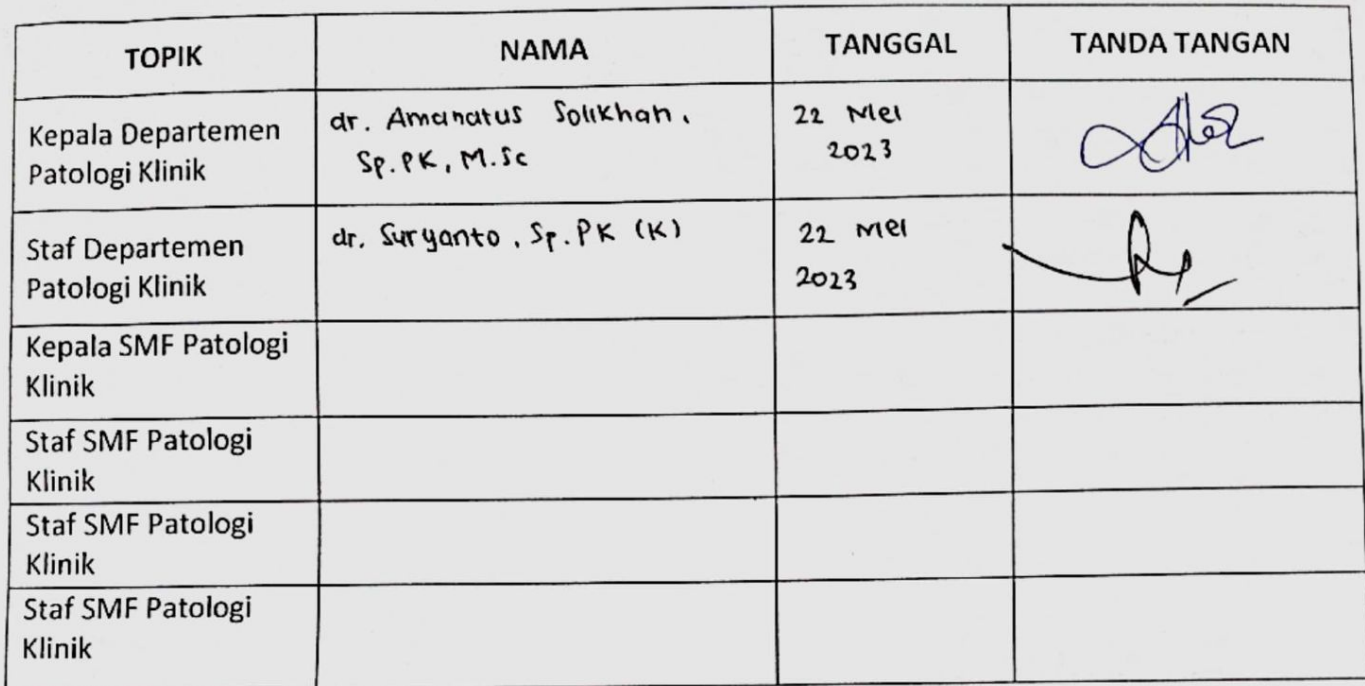 TOPIK NAMA TANGGAL TANDA TANGAN
Kepala Departemen
Patologi Klinik
dr. Amanatus Solikhah,
Sp.PK, M.Sc
22 Mei
2023
Staf Departemen
Patologi Klinik
dr. Suryanto, Sp.PK (K)
22 Mei
2023
Kepala SMF Patologi
Klinik
Staf SMF Patologi
Klinik
Staf SMF Patologi
Klinik
Staf SMF Patologi
Klinik